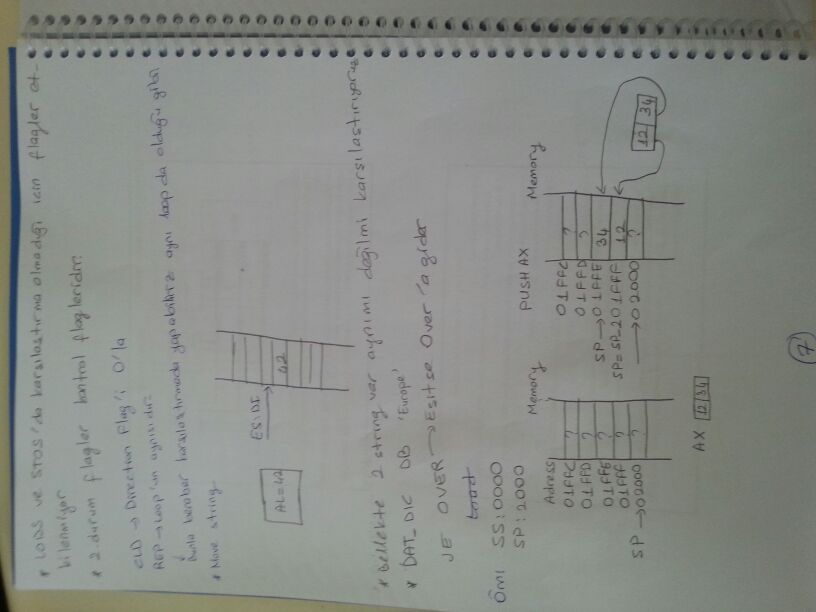 * LODS ve STOS'da karsılastırma olmadığı icin flagler et-
kilenmiyor
* 2. durum flagler kontrol flagleridir.
CLD → Direction Flag'i 0'la
REP → Loop'un aynısıdır
Bunla beraber karsılastırmada yapabiliriz aynı loop da olduğu gibi
* Move string
ES:DI
42
AL=42
* Bellekte 2 string var aynımı değilmi karsılastırıyoruz
* DAT_DIC DB 'Europe'
JE OVER → Esitse Over'a gider
Ömı SS:0000
SP:2000
Adress Memory
01FFC ?
01FFD ?
01FFE ?
01FFF ?
SP → 02000 ?
AX 12 34
PUSH AX Memory
01FFC ?
01FFD ?
SP → 01FFE 34
SP=SP-2 01FFF 12
→ 02000 ?
12 34
7